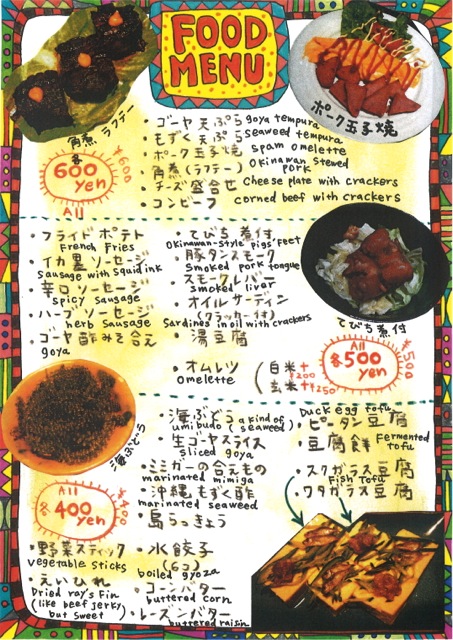 FOOD
MENU
ポーク玉子焼
角煮 ラフテー
各
600
yen
All
¥600
・ゴーヤ天ぷら goya tempura
・もずく天ぷら seaweed tempura
・ポーク玉子焼 spam omelette
・角煮(ラフテー) Okinawan stewed pork
・チーズ盛合せ cheese plate with crackers
・コンビーフ corned beef with crackers
・フライドポテト
French fries
・イカ墨 ソーセージ
sausage with squid ink
・辛口ソーセージ
spicy sausage
・ハーブ ソーセージ
herb sausage
・ゴーヤ 酢みそ合え
goya
・てびち煮付
Okinawan-style pigs' feet
・豚タンスモーク
smoked pork tongue
・スモークレバー
smoked liver
・オイルサーディン
(クラッカー付)
Sardines in oil with crackers
・湯豆腐
・オムレツ
omelette
(白米+
¥200
玄米+¥250
てびち煮付
All
各500
yen
¥500
海ぶどう
All
各400
yen
¥400
・海ぶどう (a kind of seaweed)
umibudo
・生ゴヤスライス
sliced goya
・ミミガーの合えもの
marinated mimiga
・沖縄もずく酢
marinated seaweed
・島らっきょう
Duck egg tofu
・ピータン豆腐
・豆腐餻 Fermented tofu
・スクガラス豆腐
Fish Tofu
・ワタガラス豆腐
・野菜スティック
vegetable sticks
・えいひれ
Dried ray's Fin
(like beef jerky
but sweet
・水餃子
(6コ)
boiled gyoza
・コーンバター
buttered corn
・レーズンバター
buttered raisin